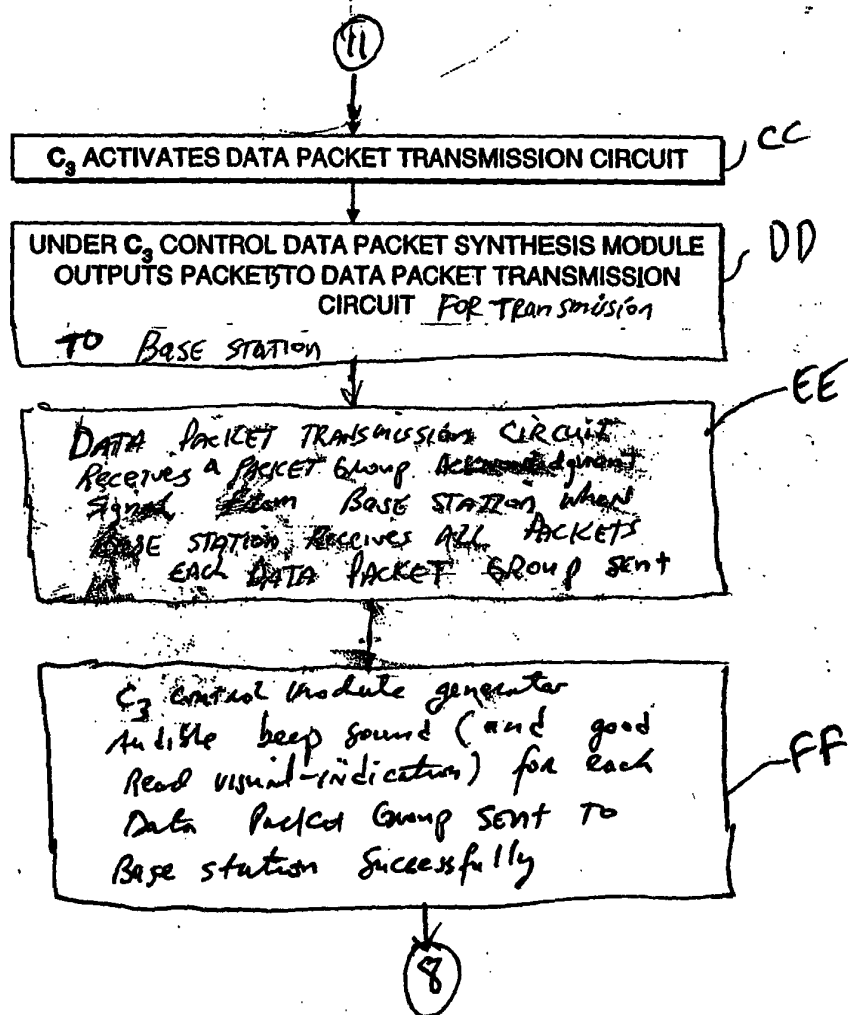 11
C₃ ACTIVATES DATA PACKET TRANSMISSION CIRCUIT
CC
UNDER C₃ CONTROL DATA PACKET SYNTHESIS MODULE
OUTPUTS PACKETS TO DATA PACKET TRANSMISSION
CIRCUIT FOR Transmission
TO BASE STATION
DD
DATA PACKET TRANSMISSION CIRCUIT
Receives a PACKET Group Acknowledgment
Signal From BASE STATION when
BASE STATION Receives ALL PACKETS
EACH DATA PACKET GROUP Sent
EE
C₃ control module generator
Audible beep sound (and good
Read visual-indication) for each
Data Packet Group SENT TO
Base station Successfully
FF
8